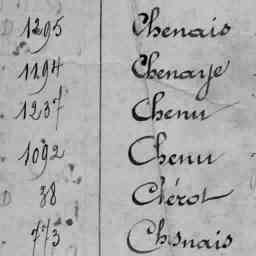 1295 Chenais
1194 Chenaye
1237 Chenu
1092 Chenu
38 Clérot
773 Chsnais